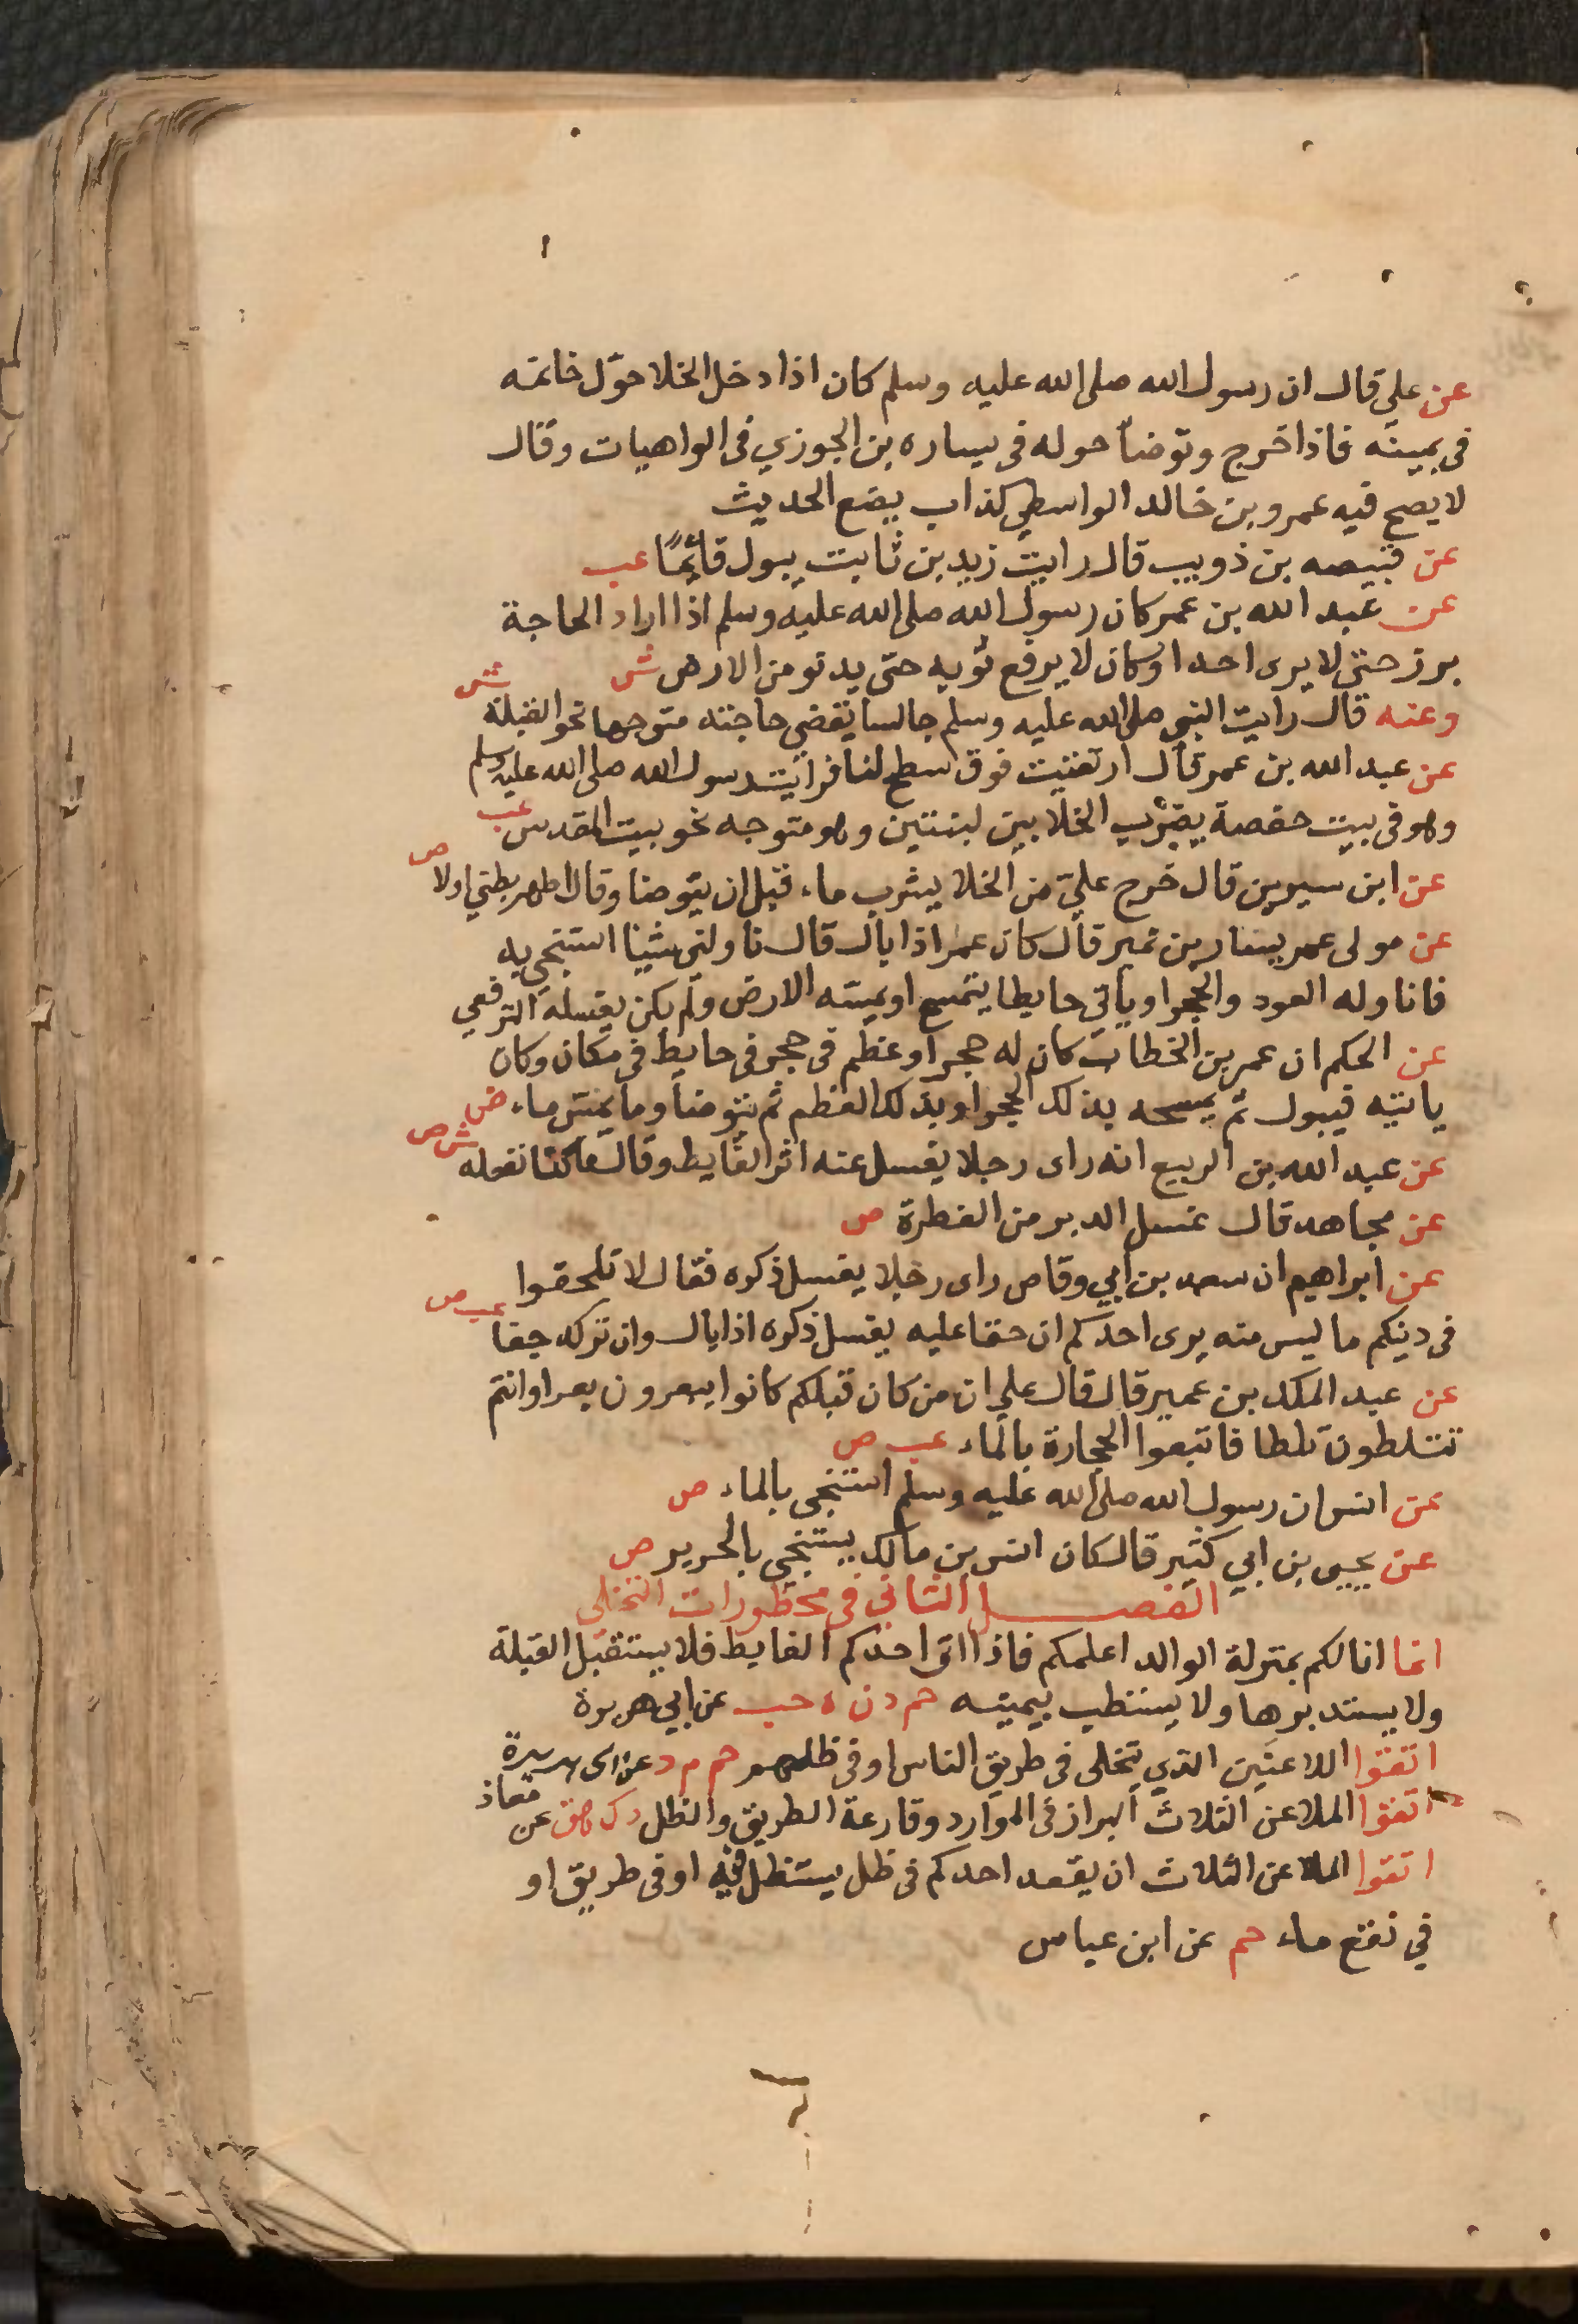 عن علي قال ان رسول الله صلى الله عليه وسلم كان اذا دخل الخلا حوّل خاتمه
فى يمينه فاذا خرج وتوضأ حوله فى يساره بن الجوزي فى الواهيات وقال
لا يصح فيه عمرو بن خالد الواسطي كذاب يضع الحديث
عن قبيصه بن ذويب قال رايت زيد بن ثابت يبول قائمًا عب
عن عبد الله بن عمر كان رسول الله صلى الله عليه وسلم اذا اراد الحاجة
برز حتى لا يرى احدا وكان لا يرفع ثوبه حتى يدنو من الارض ش
وعنه قال رايت النبي صلى الله عليه وسلم جالسا يقضي حاجته متوجها نحو القبلة ش
عن عبد الله بن عمر قال ارتقيت فوق سطح لنا فرأيت رسول الله صلى الله عليه وسلم
وهو فى بيت حفصة بضرب الخلا بين لبنتين وهو متوجه نحو بيت المقدس عب
عن ابن سيرين قال خرج عليّ من الخلا يشرب ماء قبل ان يتوضا وقال اطهر بطني اولا ص
عن مولى عمر يسار بن نمير قال كان عمر اذا بال قال ناولني شيئا استنجي به
فاناوله العود والحجر او ياتي حايطا يتمسح او يمسه الارض ولم يكن يغسله الترقفي
عن الحكم ان عمر بن الخطاب كان له حجر او عظم فى حجر فى حايط فى مكان وكان
ياتيه فيبول ثم يمسحه بذلك الحجر او بذلك العظم ثم يتوضأ وما يمس ماء ض
عن عبد الله بن الربيع انه راى رجلا يغسل عنه اثر الغايط وقال ما كنا نفعله ش ص
عن مجاهد قال غسل الدبر من الفطرة ص
عن ابراهيم ان سعد بن ابي وقاص راى رجلا يغسل ذكره فقال لا تلحقوا
فى دينكم ما ليس منه يرى احدكم ان حقا عليه يغسل ذكره اذا بال وان تركه جفا عب ص
عن عبد الملك بن عمير قال قال علي ان من كان قبلكم كانوا يبعرون بعرا وانتم
تثلطون ثلطا فاتبعوا الحجارة بالماء عب ص
عن انس ان رسول الله صلى الله عليه وسلم استنجى بالماء ص
عن يحيى بن ابي كثير قال كان انس بن مالك يستنجي بالحرير ص
الفصل الثاني في محظورات التخلي
انما انا لكم بمنزلة الوالد اعلمكم فاذا اتى احدكم الغايط فلا يستقبل القبلة
ولا يستدبرها ولا يستطيب بيمينه حم د ن ه حب عن ابي هريرة
اتقوا اللاعنين الذي يتخلى فى طريق الناس او فى ظلهم حم م د عن ابي هريرة
اتقوا الملاعن الثلاث البراز فى الموارد وقارعة الطريق والظل د ك هق عن معاذ
اتقوا الملاعن الثلاث ان يقعد احدكم فى ظل يستظل فيه او فى طريق او
في نقع ماء حم عن ابن عباس